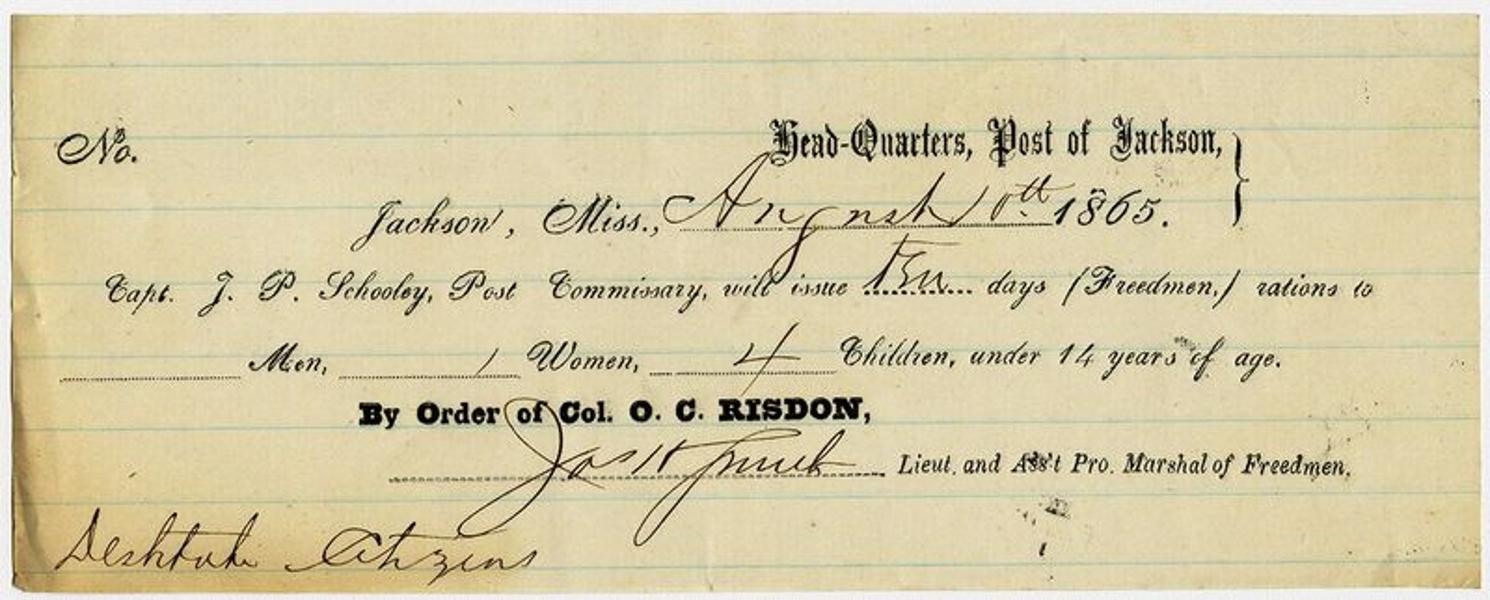 Head-Quarters, Post of Jackson,
No.
Jackson, Miss., August 10th 1865.
Capt. J. P. Schooley, Post Commissary, will issue Ten days (Freedmen,) rations to
Men, 1 Women, 4 Children, under 14 years of age.
By Order of Col. O. C. RISDON,
Jas H Lieut. and Ass't Pro. Marshal of Freedmen.
Destitute Citizens